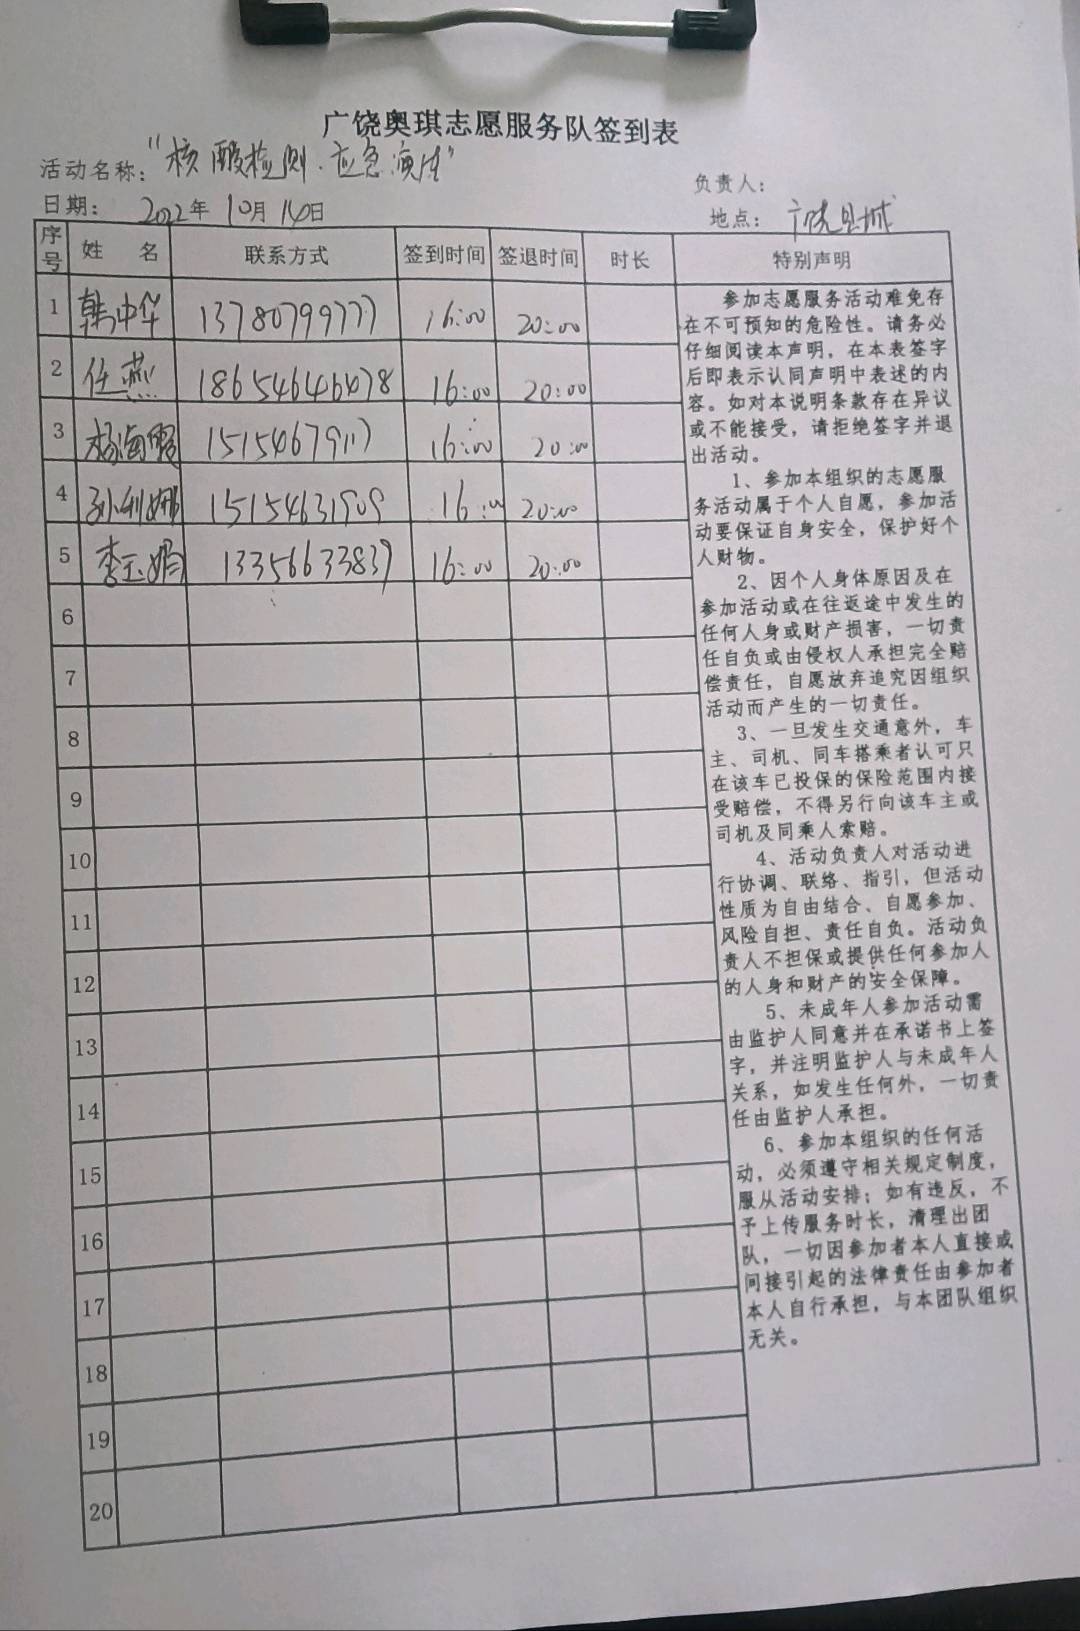 广饶奥琪志愿服务队签到表
活动名称：“核酸检测·应急演练”
负责人：
日期： 2022年 10月 14日
地点：广饶县城
序号 姓 名 联系方式 签到时间 签退时间 时长 特别声明
1 韩中华 13780799777 16:00 20:00
2 任燕 18654646478 16:00 20:00
3 杨海霞 15154679117 16:00 20:00
4 孙利娜 15154631909 16:00 20:00
5 李玉娟 13356633839 16:00 20:00
6
7
8
9
10
11
12
13
14
15
16
17
18
19
20
参加志愿服务活动难免存
在不可预知的危险性。请务必
仔细阅读本声明，在本表签字
后即表示认同声明中表述的内
容。如对本说明条款存在异议
或不能接受，请拒绝签字并退
出活动。
1、参加本组织的志愿服
务活动属于个人自愿，参加活
动要保证自身安全，保护好个
人财物。
2、因个人身体原因及在
参加活动或在往返途中发生的
任何人身或财产损害，一切责
任自负或由侵权人承担完全赔
偿责任，自愿放弃追究因组织
活动而产生的一切责任。
3、一旦发生交通意外，车
主、司机、同车搭乘者认可只
在该车已投保的保险范围内接
受赔偿，不得另行向该车主或
司机及同乘人索赔。
4、活动负责人对活动进
行协调、联络、指引，但活动
性质为自由结合、自愿参加、
风险自担、责任自负。活动负
责人不担保或提供任何参加人
的人身和财产的安全保障。
5、未成年人参加活动需
由监护人同意并在承诺书上签
字，并注明监护人与未成年人
关系，如发生任何外，一切责
任由监护人承担。
6、参加本组织的任何活
动，必须遵守相关规定制度，
服从活动安排；如有违反，不
予上传服务时长，清理出团
队，一切因参加者本人直接或
间接引起的法律责任由参加者
本人自行承担，与本团队组织
无关。